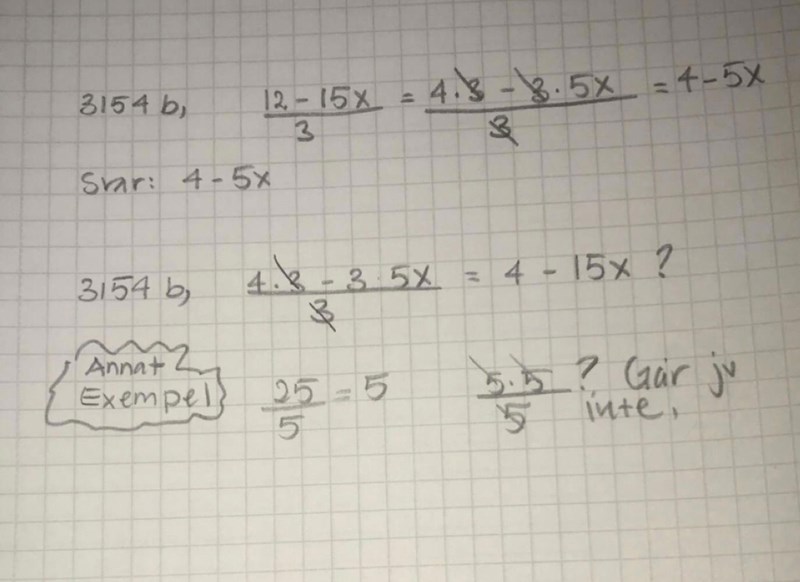 3154 b, (12 - 15x)/3 = (4·3 - 3·5x)/3 = 4 - 5x
Svar: 4 - 5x
3154 b, (4·3 - 3·5x)/3 = 4 - 15x ?
Annat
Exempel
25/5 = 5
(5·5)/5 ? Går ju
inte.